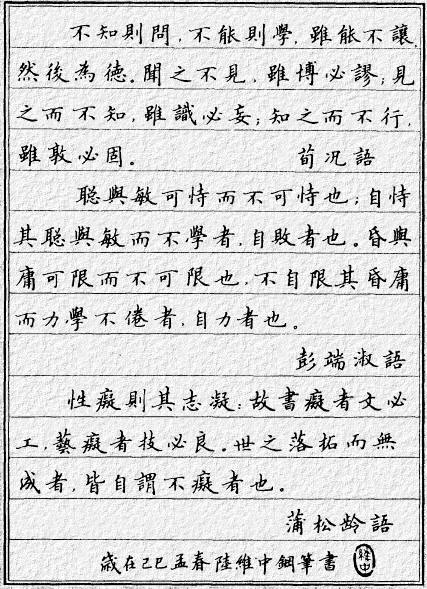 不知則問，不能則學，雖能不讓，
然後為德。聞之不見，雖博必謬；見
之而不知，雖識必妄；知之而不行，
雖敦必困。 荀況語
聪與敏可恃而不可恃也；自恃
其聪與敏而不學者，自敗者也。昏與
庸可限而不可限也，不自限其昏庸
而力學不倦者，自力者也。
彭端淑語
性癡則其志凝：故書癡者文必
工，藝癡者技必良。世之落拓而無
成者，皆自謂不癡者也。
蒲松龄語
歲在己巳孟春陸維中鋼筆書 維中